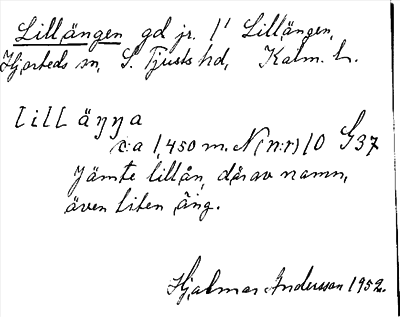 Lillängen gd jr. 1' Lillängen,
Hjorteds sn, S. Tjusts hd, Kalm. l.
lill äŋŋa
c:a 1,450 m. N (n:r) 10 G37
Jämte lillån, därav namn,
även liten äng.
Hjalmar Andersson 1952.